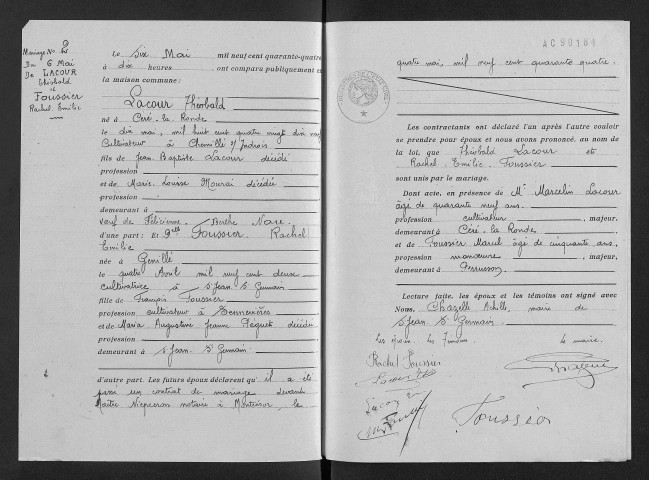 Mariage No 8
Du 6 Mai
De LACOUR
Théobald
et
FOUSSIER
Rachel. Emilie
Le Six Mai mil neuf cent quarante-quatre
à dix heures ont comparu publiquement en
la maison commune:
Lacour Théobald
né à Céré-la Ronde
le dix mai, mil huit cent quatre vingt dix
Cultivateur à Chemillé s/ Indrois
fils de Jean Baptiste Lacour décédé
profession
et de Marie Louise décédée
profession
demeurant à
veuf de Félicienne Berthe
d'une part: Et Foussier Rachel
Emilie
née à Genillé
le quatre Avril mil neuf cent douze
cultivatrice à St Jean St Germain
fille de François Foussier
profession cultivateur à Sennevières
et de Maria Augustine Jeanne décédée
profession
demeurant à St Jean St Germain
d'autre part. Les futurs époux déclarent qu'il a été
passé un contrat de mariage devant
Maître notaire à Montrésor, le
AC 90164
quatre mai, mil neuf cent quarante quatre.
Les contractants ont déclaré l'un après l'autre vouloir
se prendre pour époux et nous avons prononcé, au nom de
la loi, que Théobald Lacour et
Rachel Emilie Foussier
sont unis par le mariage.
Dont acte, en présence de Mr Marcelin Lacour
âgé de quarante neuf ans.
profession cultivateur, majeur,
demeurant à Céré-la Ronde
et de Foussier Marcel âgé de cinquante ans,
profession manœuvre, majeur,
demeurant à Perrusson
Lecture faite, les époux et les témoins ont signé avec
Nous, Chazelle Achille, maire de
St Jean St Germain
Les époux. Les Témoins. Le maire.
Rachel Foussier
Lacour
Lacour
Foussier